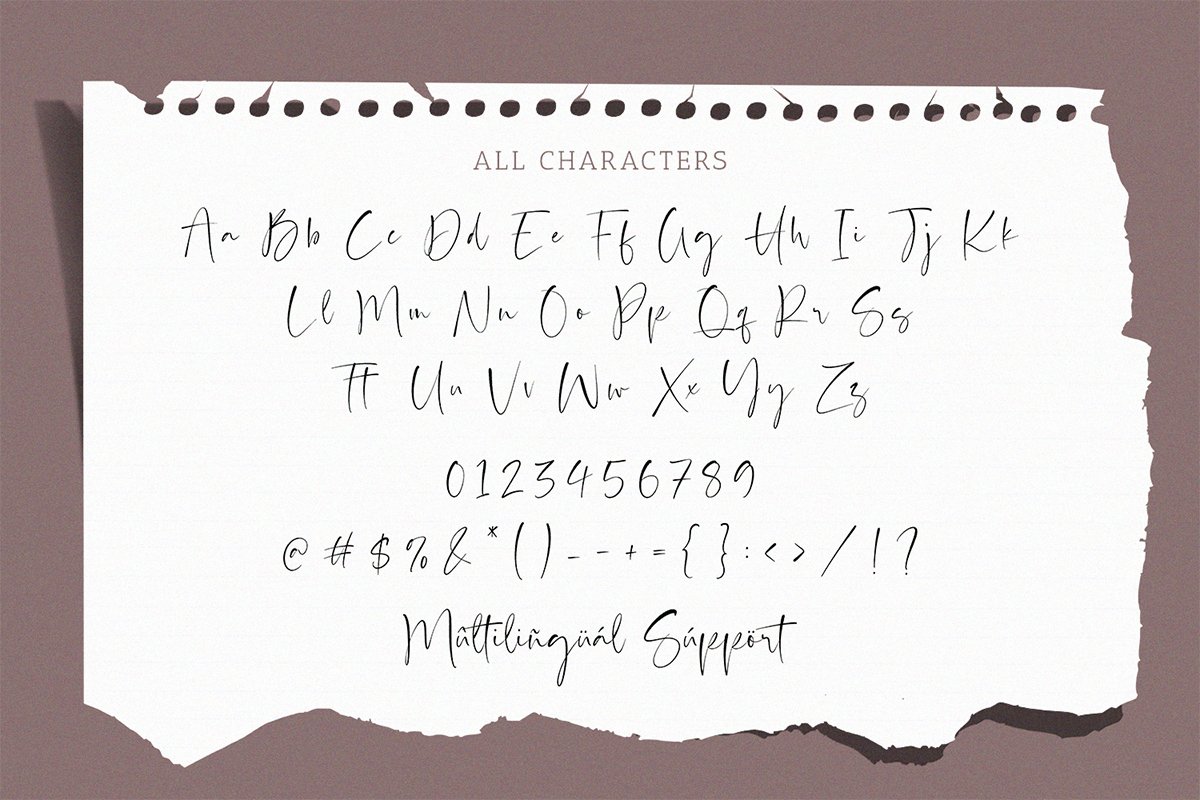 ALL CHARACTERS
Aa Bb Cc Dd Ee Ff Gg Hh Ii Jj Kk
Ll Mm Nn Oo Pp Qq Rr Ss
Tt Uu Vv Ww Xx Yy Zz
0123456789
@ # $ % & * ( ) _ - + = { } : < > / ! ?
Mûltiliñgüál Súppört